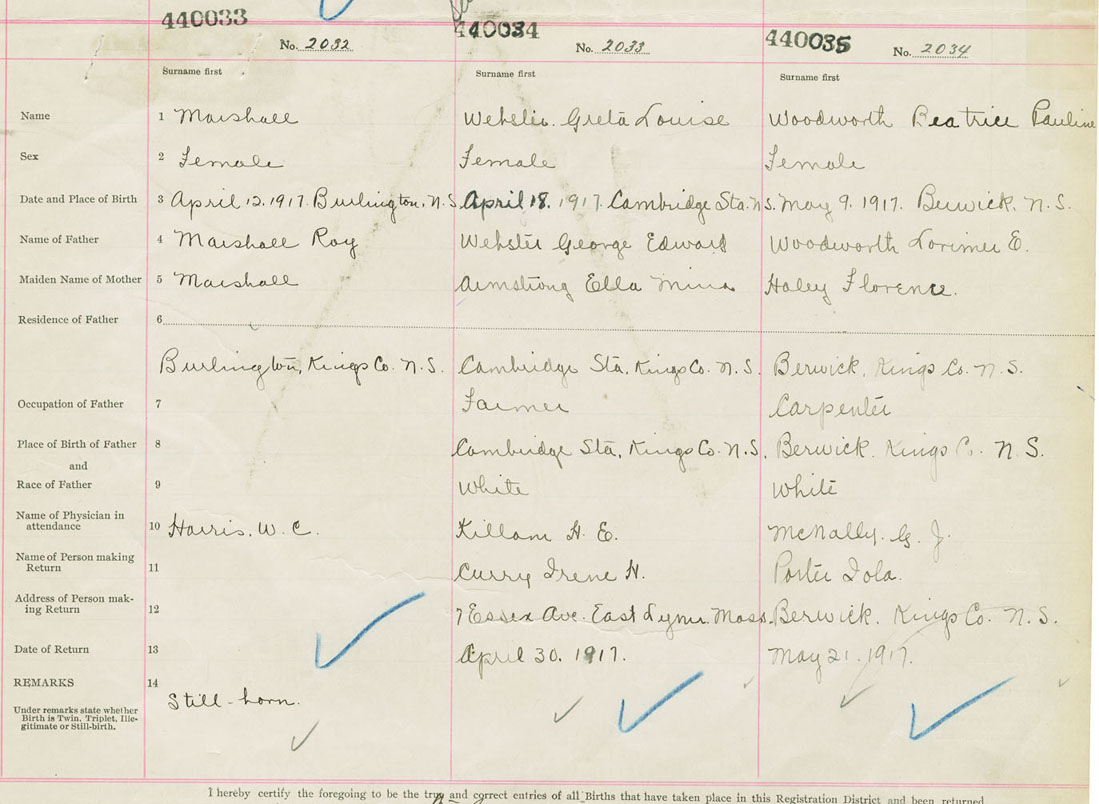 440033 440034 440035
No. 2032 No. 2033 No. 2034
Surname first Surname first Surname first
Name 1 Marshall Webster. Greta Louise Woodworth Beatrice Pauline
Sex 2 Female Female Female
Date and Place of Birth 3 April 12. 1917. Burlington, N.S. April 18. 1917. Cambridge Sta. N.S. May 9. 1917. Berwick. N.S.
Name of Father 4 Marshall Roy Webster George Edward Woodworth Lorimer E.
Maiden Name of Mother 5 Marshall Armstrong Ella Mina Haley Florence.
Residence of Father 6
Burlington, Kings Co. N.S. Cambridge Sta, Kings Co. N.S. Berwick, Kings Co. N.S.
Occupation of Father 7 Farmer Carpenter
Place of Birth of Father 8 Cambridge Sta, Kings Co. N.S. Berwick. Kings Co. N.S.
and
Race of Father 9 White White
Name of Physician in
attendance 10 Harris. W. C. Killam H. E. McNally. G. J.
Name of Person making
Return 11 Curry Irene H. Porter Iola.
Address of Person mak-
ing Return 12 7 Essex Ave. East Lynn. Mass. Berwick. Kings Co. N.S.
Date of Return 13 April 30. 1917. May 21. 1917.
REMARKS 14 Still-born.
Under remarks state whether
Birth is Twin, Triplet, Ille-
gitimate or Still-birth.
I hereby certify the foregoing to be the true and correct entries of all Births that have taken place in this Registration District and been returned